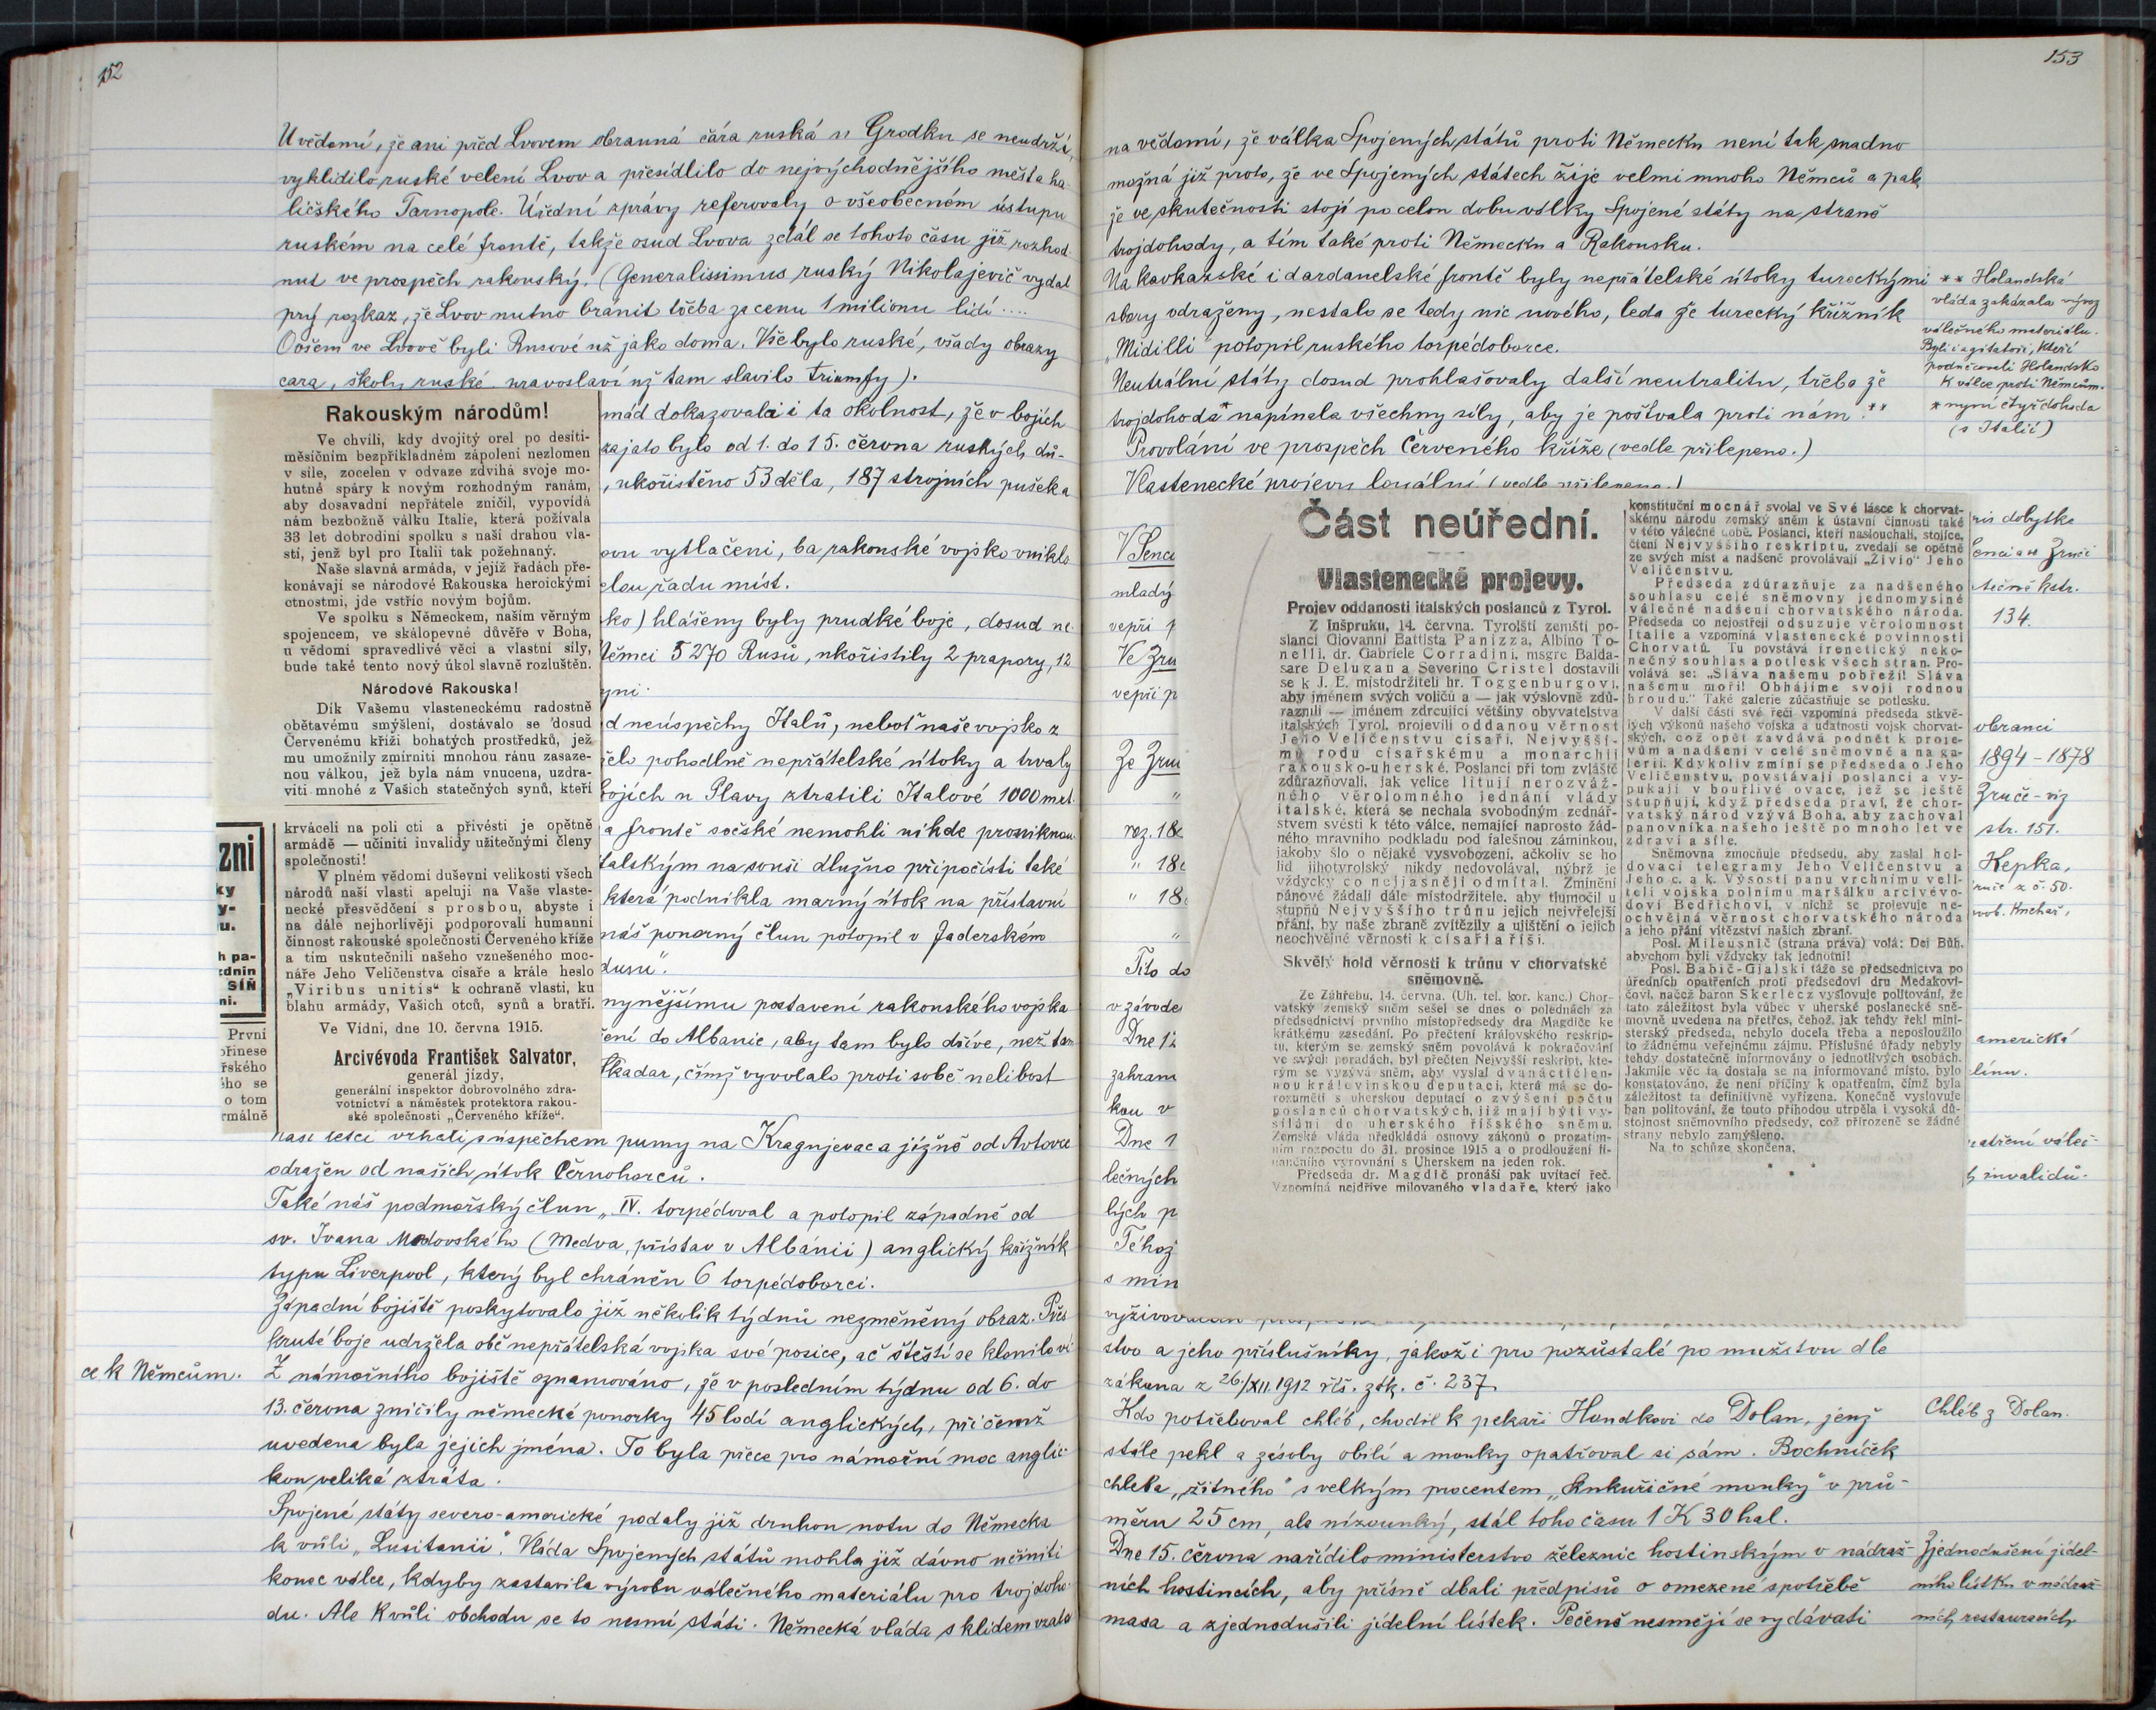 152
U vědomí, že ani před Lvovem obranná čára ruská u Grodku se neudrží,
vyklidilo ruské velení Lvov a přesídlilo do nejvýchodnějšího města ha-
ličského Tarnopole. Úřední zprávy referovaly o všeobecném ústupu
ruském na celé frontě, takže osud Lvova zdál se tohoto času již rozhod-
nut ve prospěch rakouský. (Generalissimus ruský Nikolajevič vydal
prý rozkaz, že Lvov nutno bránit třeba za cenu 1 milionu lidí ....
Ovšem ve Lvově byli Rusové už jako doma. Vše bylo ruské, všady obrazy
cara, školy ruské, pravoslaví už tam slavilo triumfy).
mád dokazovala i ta okolnost, že v bojích
zajato bylo od 1. do 15. června ruských dů-
, ukořistěno 53 děla, 187 strojních pušek a
ovu vytlačeni, ba rakouské vojsko vniklo
elou řadu míst.
ko) hlášeny byly prudké boje, dosud ne-
Němci 5270 Rusů, ukořistily 2 prapory, 12
yni.
d neúspěchy Italů, neboť naše vojsko z
želo pohodlně nepřátelské útoky a trvaly
bojích u Plavy ztratili Italové 1000 mrt.
a frontě sočské nemohli nikde proniknou-
talským na souši dlužno připočísti také
která podnikla marný útok na přístavní
náš ponorný člun potopil v Jaderském
dusu".
nynějšímu postavení rakouského vojska
ení do Albanie, aby tam bylo dříve, než tam
Skadar, čímž vyvolalo proti sobě nelibost
Rakouským národům!
Ve chvíli, kdy dvojitý orel po desíti-
měsíčním bezpříkladném zápolení nezlomen
v síle, zocelen v odvaze zdvihá svoje mo-
hutné spáry k novým rozhodným ranám,
aby dosavadní nepřátele zničil, vypovídá
nám bezbožně válku Italie, která požívala
33 let dobrodiní spolku s naší drahou vla-
stí, jenž byl pro Italii tak požehnaný.
Naše slavná armáda, v jejíž řadách pře-
konávají se národové Rakouska heroickými
ctnostmi, jde vstříc novým bojům.
Ve spolku s Německem, naším věrným
spojencem, ve skálopevné důvěře v Boha,
u vědomí spravedlivé věci a vlastní síly,
bude také tento nový úkol slavně rozluštěn.
Národové Rakouska!
Dík Vašemu vlasteneckému radostně
obětavému smýšlení, dostávalo se dosud
Červenému kříži bohatých prostředků, jež
mu umožnily zmírniti mnohou ránu zasaze-
nou válkou, jež byla nám vnucena, uzdra-
viti mnohé z Vašich statečných synů, kteří
krváceli na poli cti a přivésti je opětně
armádě — učiniti invalidy užitečnými členy
společnosti!
V plném vědomí duševní velikosti všech
národů naší vlasti apeluji na Vaše vlaste-
necké přesvědčení s prosbou, abyste i
na dále nejhorlivěji podporovali humanní
činnost rakouské společnosti Červeného kříže
a tím uskutečnili našeho vznešeného moc-
náře Jeho Veličenstva císaře a krále heslo
„Viribus unitis“ k ochraně vlasti, ku
blahu armády, Vašich otců, synů a bratří.
Ve Vídni, dne 10. června 1915.
Arcivévoda František Salvator,
generál jízdy,
generální inspektor dobrovolného zdra-
votnictví a náměstek protektora rakou-
ské společnosti „Červeného kříže“.
zni
ky
y-
u.
h pa-
zdnin
SÍŇ
ni.
První
přinese
řského
ho se
o tom
rmálně
naši letci vrhali s úspěchem pumy na Kragujevac a jižně od Avtovce
odražen od našich útok Černohorců.
Také náš podmořský člun „IV. torpédoval a potopil západně od
sv. Ivana Medovského (Medva, přístav v Albánii) anglický křižník
typu Liverpool, který byl chráněn 6 torpédoborci.
Západní bojiště poskytovalo již několik týdnů nezměněný obraz. Přes
kruté boje udržela obě nepřátelská vojska své posice, ač štěstí se klonilo ví-
ce k Němcům.
Z námořního bojiště oznamováno, že v posledním týdnu od 6. do
13. června zničily německé ponorky 45 lodí anglických, při čemž
uvedena byla jejich jména. To byla přece pro námořní moc anglic-
kou veliká ztráta.
Spojené státy severo-americké podaly již druhou notu do Německa
k vůli „Lusitanii“. Vláda Spojených států mohla již dávno učiniti
konec válce, kdyby zastavila výrobu válečného materiálu pro trojdoho-
du. Ale kvůli obchodu se to nesmí státi. Německá vláda s klidem vzala
153
na vědomí, že válka Spojených států proti Německu není tak snadno
možná již proto, že ve Spojených státech žije velmi mnoho Němců a pak,
že ve skutečnosti stojí po celou dobu války Spojené státy na straně
trojdohody, a tím také proti Německu a Rakousku.
Na kavkazské i dardanelské frontě byly nepřátelské útoky tureckými
sbory odraženy, nestalo se tedy nic nového, leda že turecký křižník
„Midilli“ potopil ruského torpédoborce.
Neutrální státy dosud prohlašovaly další neutralitu, třeba že
trojdohoda* napínala všechny síly, aby je poštvala proti nám.**
Provolání ve prospěch Červeného kříže (vedle přilepeno.)
Vlastenecké projevy loyální (vedle přilepeno.)
** Holandská
vláda zakázala vývoz
válečného materiálu.
Byli i agitátoři, kteří
podněcovali Holandsko
k válce proti Němcům.
* nyní čtyřdohoda
(s Itálií)
V Senci
mladý
vepři
Ve Zru
vepři p
Ze Zru
"
roz. 18
" 18
" 18
"
Tito do
v závode
Dne 12
zahran
kou v
Dne 1
lečných
lých p
Téhož
s min
Část neúřední.
Vlastenecké projevy.
Projev oddanosti italských poslanců z Tyrol.
Z Inšpruku, 14. června. Tyrolští zemští po-
slanci Giovanni Battista Panizza, Albino To-
nelli, dr. Gabriele Corradini, msgre Balda-
sare Delugan a Severino Cristel dostavili
se k J. E. místodržiteli hr. Toggenburgovi,
aby jménem svých voličů a — jak výslovně zdů-
raznili — jménem zdrcující většiny obyvatelstva
italských Tyrol, projevili oddanou věrnost
Jeho Veličenstvu císaři, Nejvyšší-
mu rodu císařskému a monarchii
rakousko-uherské. Poslanci při tom zvláště
zdůrazňovali, jak velice litují nerozváž-
ného věrolomného jednání vlády
italské, která se nechala svobodným zednář-
stvem svésti k této válce, nemající naprosto žád-
ného mravního podkladu pod falešnou záminkou,
jakoby šlo o nějaké vysvobození, ačkoliv se ho
lid jihotyrolský nikdy nedovolával, nýbrž je
vždycky co nejjasněji odmítal. Zmínění
pánové žádali dále místodržitele, aby tlumočil u
stupňů Nejvyššího trůnu jejich nejvřelejší
přání, by naše zbraně zvítězily a ujištění o jejich
neochvějné věrnosti k císaři a říši.
Skvělý hold věrnosti k trůnu v chorvatské
sněmovně.
Ze Záhřebu, 14. června. (Uh. tel. kor. kanc.) Chor-
vatský zemský sněm sešel se dnes o polednách za
předsednictví prvního místopředsedy dra Magdiče ke
krátkému zasedání. Po přečtení královského reskrip-
tu, kterým se zemský sněm povolává k pokračování
ve svých poradách, byl přečten Nejvyšší reskript, kte-
rým se vyzývá sněm, aby vyslal dvanáctičlen-
nou královinskou deputaci, která má se do-
rozuměti s uherskou deputací o zvýšení počtu
poslanců chorvatských, již mají býti vy-
síláni do uherského říšského sněmu.
Zemská vláda předkládá osnovy zákonů o prozatím-
ním rozpočtu do 31. prosince 1915 a o prodloužení fi-
nančního vyrovnání s Uherskem na jeden rok.
Předseda dr. Magdič pronáší pak uvítací řeč.
Vzpomíná nejdříve milovaného vladaře, který jako
konstituční mocnář svolal ve Své lásce k chorvat-
skému národu zemský sněm k ústavní činnosti také
v této válečné době. Poslanci, kteří naslouchali, stojíce,
čtení Nejvyššího reskriptu, zvedají se opětně
ze svých míst a nadšeně provolávají „Živio“ Jeho
Veličenstvu.
Předseda zdůrazňuje za nadšeného
souhlasu celé sněmovny jednomyslné
válečné nadšení chorvatského národa.
Předseda co nejostřeji odsuzuje věrolomnost
Italie a vzpomíná vlastenecké povinnosti
Chorvatů. Tu povstává frenetický neko-
nečný souhlas a potlesk všech stran. Pro-
volává se: „Sláva našemu pobřeží! Sláva
našemu moři! Obhájíme svoji rodnou
hroudu.“ Také galerie zúčastňuje se potlesku.
V další části své řeči vzpomíná předseda skvě-
lých výkonů našeho vojska a udatnosti vojsk chorvat-
ských, což opět zavdává podnět k proje-
vům a nadšení v celé sněmovně a na ga-
lerii. Kdykoliv zmíní se předseda o Jeho
Veličenstvu, povstávají poslanci a vy-
pukají v bouřlivé ovace, jež se ještě
stupňují, když předseda praví, že chor-
vatský národ vzývá Boha, aby zachoval
panovníka našeho ještě po mnoho let ve
zdraví a síle.
Sněmovna zmocňuje předsedu, aby zaslal hol-
dovací telegramy Jeho Veličenstvu a
Jeho c. a k. Výsosti panu vrchnímu veli-
teli vojska polnímu maršálku arcivévo-
dovi Bedřichovi, v nichž se projevuje ne-
ochvějná věrnost chorvatského národa
a jeho přání vítězství našich zbraní.
Posl. Mileusnič (strana práva) volá: Dej Bůh,
abychom byli vždycky tak jednotni!
Posl. Babič-Gjalski táže se předsednictva po
úředních opatřeních proti předsedovi dru Medakovi-
čovi, načež baron Skerlecz vyslovuje politování, že
tato záležitost byla vůbec v uherské poslanecké sně-
movně uvedena na přetřes, čehož, jak tehdy řekl mini-
sterský předseda, nebylo docela třeba a neposloužilo
to žádnému veřejnému zájmu. Příslušné úřady nebyly
tehdy dostatečně informovány o jednotlivých osobách.
Jakmile věc ta dostala se na informované místo, bylo
konstatováno, že není příčiny k opatřením, čímž byla
záležitost ta definitivně vyřízena. Konečně vyslovuje
ban politování, že touto příhodou utrpěla i vysoká dů-
stojnost sněmovního předsedy, což přirozeně se žádné
strany nebylo zamýšleno.
Na to schůze skončena.
* * *
ris dobytka
Senci a u Zruči
134.
obranci
1894 - 1878
Zruče - viz
str. 151.
Kepka,
ruč z č. 50.
americká
línu.
patření váleč-
h invalidů.
stvo a jeho příslušníky, jakož i pro pozůstalé po mužstvu dle
zákona z 26./XII. 1912 říš. zák. č. 237.
Kdo potřeboval chléb, chodil k pekaři Houdkovi do Dolan, jenž
stále pekl a zásoby obilí a mouky opatřoval si sám. Bochníček
chleba „žitného“ s velkým procentem „kukuřičné mouky“ v prů-
měru 25 cm, ale nízounký, stál toho času 1 K 30 hal.
Chléb z Dolan.
Dne 15. června nařídilo ministerstvo železnic hostinským v nádraž-
ních hostincích, aby přísně dbali předpisů o omezené spotřebě
masa a zjednodušili jídelní lístek. Pečeně nesmějí se vydávati
Zjednodušení jídel-
ního lístku v nádraž-
ních restauracích